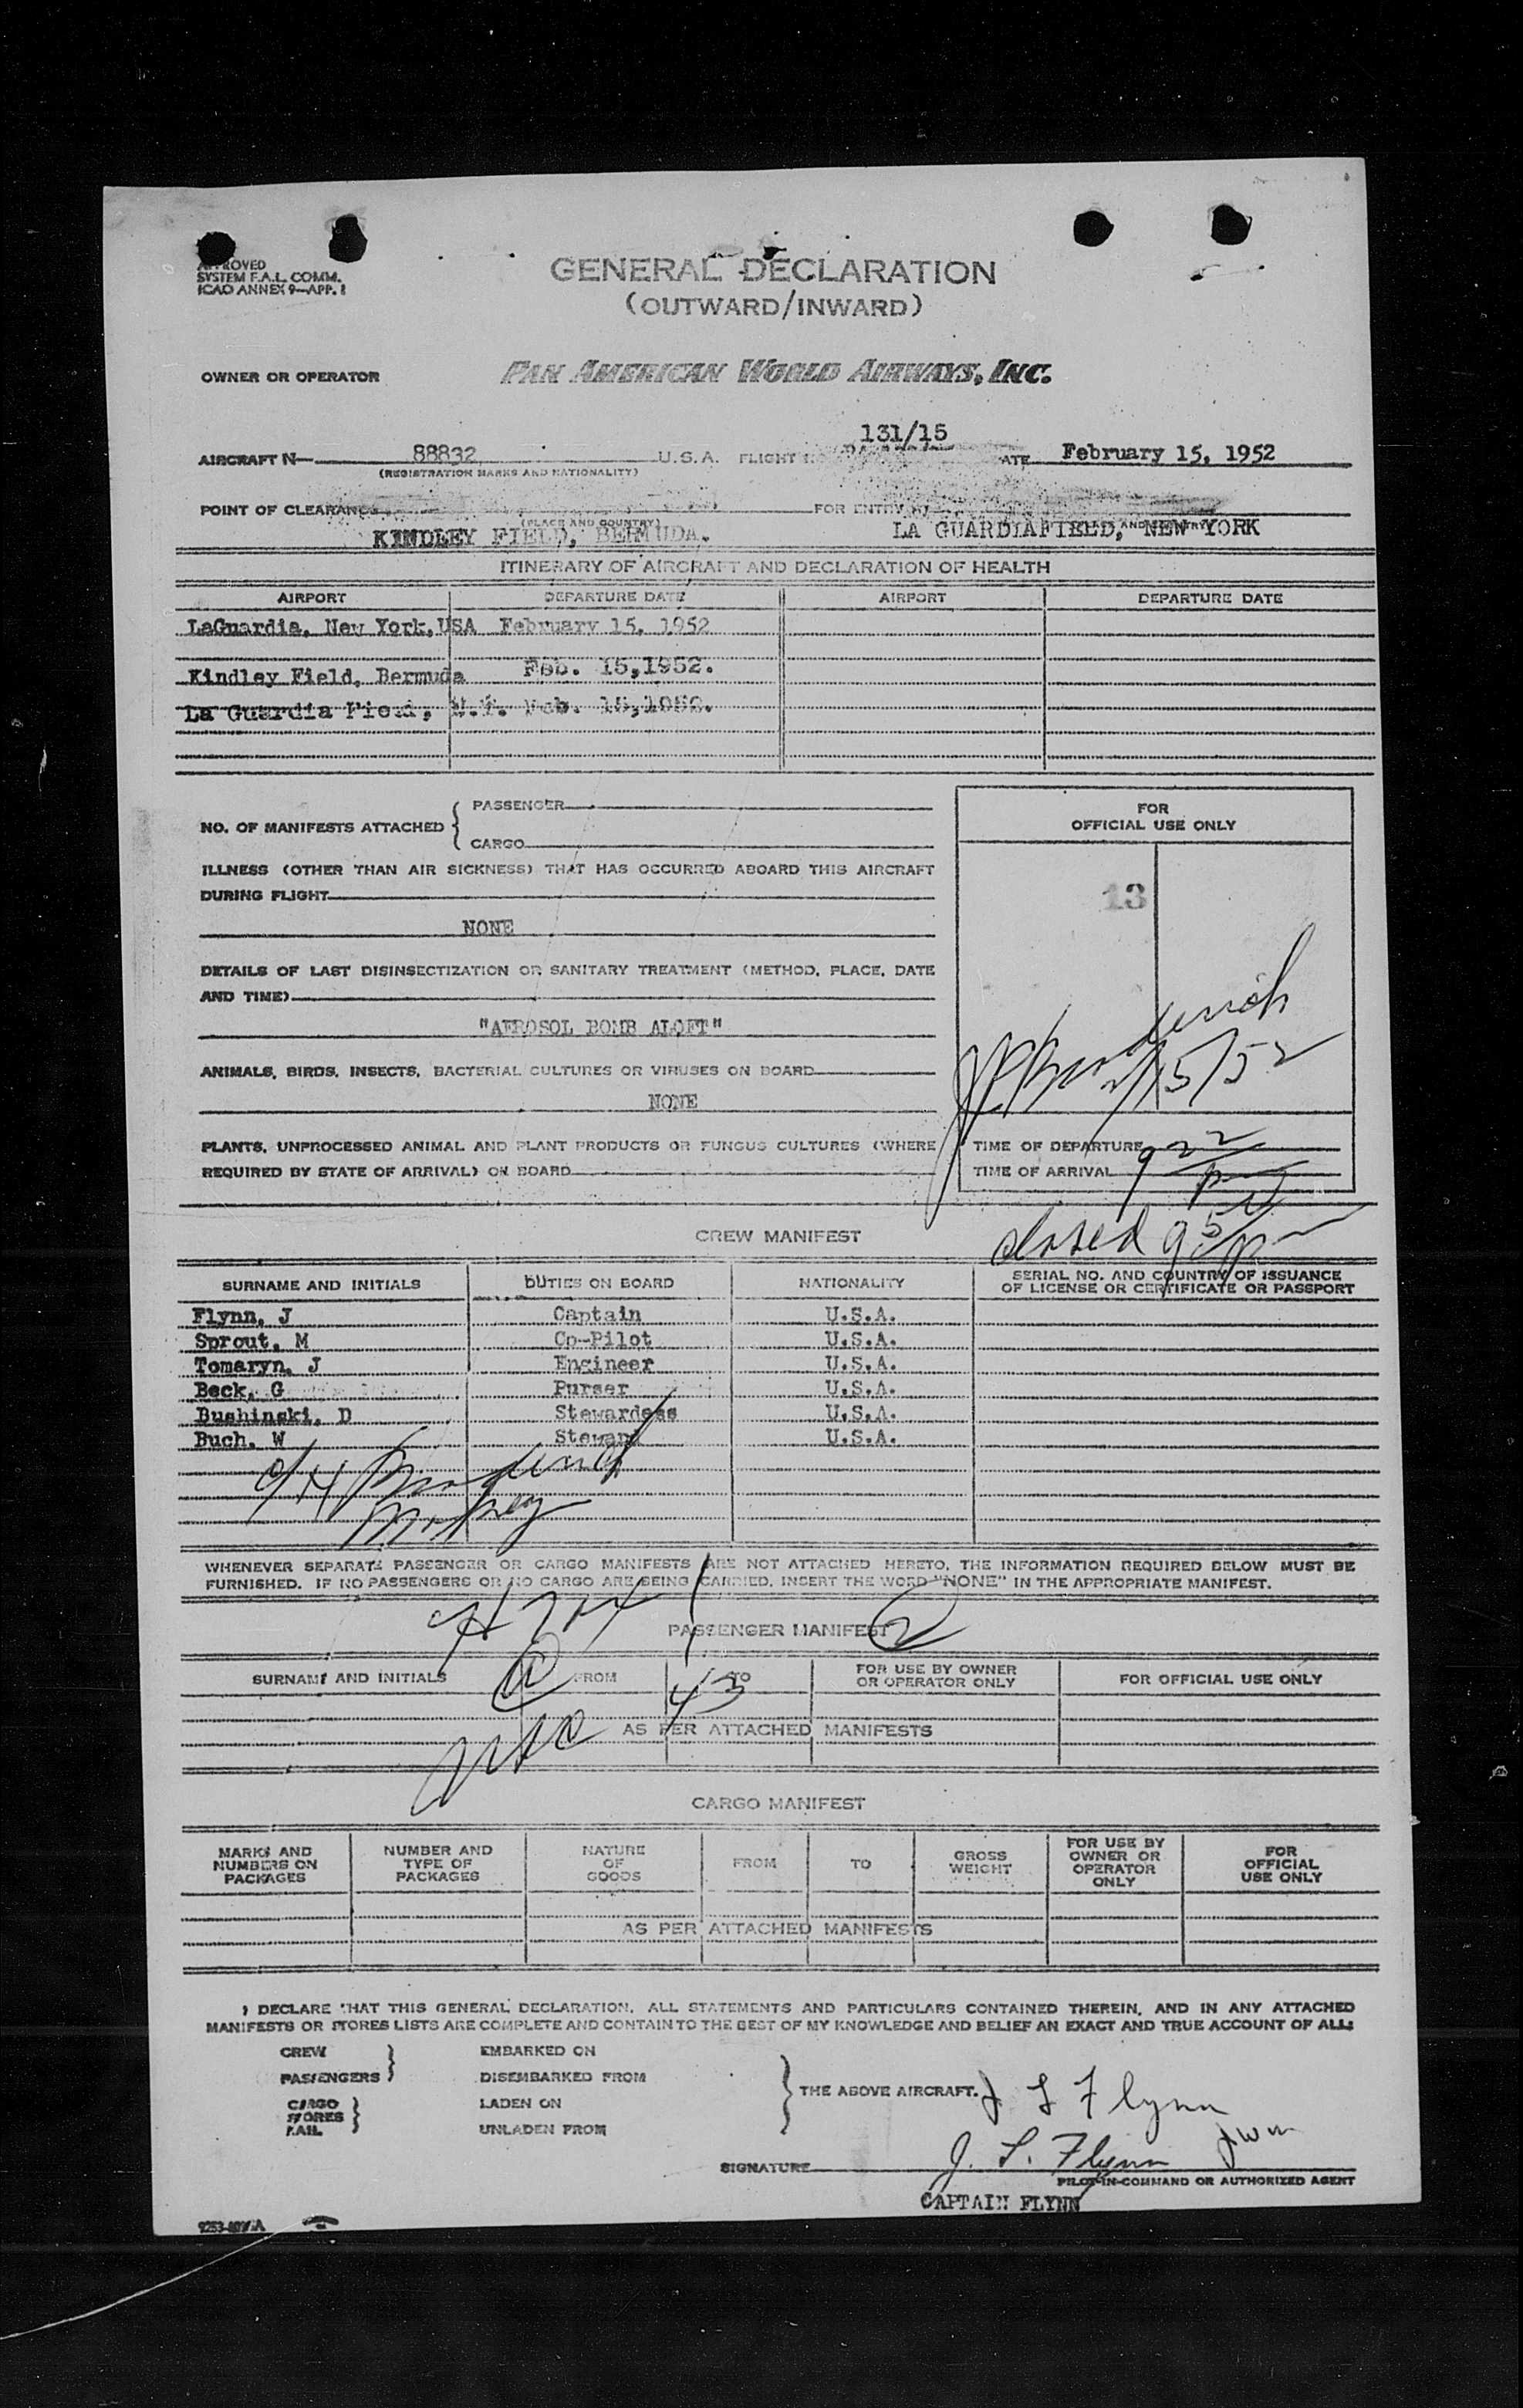 APPROVED
SYSTEM F.A.L. COMM.
ICAO ANNEX 9—APP. 1
GENERAL DECLARATION
(OUTWARD/INWARD)
OWNER OR OPERATOR PAN AMERICAN WORLD AIRWAYS, INC.
131/15
AIRCRAFT N— 88832 U.S.A. FLIGHT DATE February 15, 1952
(REGISTRATION MARKS AND NATIONALITY)
POINT OF CLEARANCE FOR ENTRY
(PLACE AND COUNTRY)
KINDLEY FIELD, BERMUDA. LA GUARDIA FIELD, NEW YORK
ITINERARY OF AIRCRAFT AND DECLARATION OF HEALTH
AIRPORT DEPARTURE DATE AIRPORT DEPARTURE DATE
LaGuardia, New York, USA February 15, 1952
Kindley Field, Bermuda Feb. 15,1952.
La Guardia Field, N.Y. Feb. 15,1952.
NO. OF MANIFESTS ATTACHED { PASSENGER
CARGO
FOR
OFFICIAL USE ONLY
ILLNESS (OTHER THAN AIR SICKNESS) THAT HAS OCCURRED ABOARD THIS AIRCRAFT
DURING FLIGHT
13
NONE
DETAILS OF LAST DISINSECTIZATION OR SANITARY TREATMENT (METHOD, PLACE, DATE
AND TIME)
"AEROSOL BOMB ALOFT"
2/15/52
ANIMALS, BIRDS, INSECTS, BACTERIAL CULTURES OR VIRUSES ON BOARD
NONE
PLANTS, UNPROCESSED ANIMAL AND PLANT PRODUCTS OR FUNGUS CULTURES (WHERE
REQUIRED BY STATE OF ARRIVAL) ON BOARD
TIME OF DEPARTURE
TIME OF ARRIVAL 9 22 p
closed 9 5
CREW MANIFEST
SURNAME AND INITIALS DUTIES ON BOARD NATIONALITY SERIAL NO. AND COUNTRY OF ISSUANCE
OF LICENSE OR CERTIFICATE OR PASSPORT
Flynn, J Captain U.S.A.
Sprout, M Co-Pilot U.S.A.
Tomaryn, J Engineer U.S.A.
Beck, G Purser U.S.A.
Bushinski, D Stewardess U.S.A.
Buch, W Steward U.S.A.
WHENEVER SEPARATE PASSENGER OR CARGO MANIFESTS ARE NOT ATTACHED HERETO, THE INFORMATION REQUIRED BELOW MUST BE
FURNISHED. IF NO PASSENGERS OR NO CARGO ARE BEING CARRIED, INSERT THE WORD "NONE" IN THE APPROPRIATE MANIFEST.
PASSENGER MANIFEST 2
SURNAME AND INITIALS FROM TO FOR USE BY OWNER
OR OPERATOR ONLY FOR OFFICIAL USE ONLY
43
AS PER ATTACHED MANIFESTS
CARGO MANIFEST
MARKS AND
NUMBERS ON
PACKAGES NUMBER AND
TYPE OF
PACKAGES NATURE
OF
GOODS FROM TO GROSS
WEIGHT FOR USE BY
OWNER OR
OPERATOR
ONLY FOR
OFFICIAL
USE ONLY
AS PER ATTACHED MANIFESTS
I DECLARE THAT THIS GENERAL DECLARATION, ALL STATEMENTS AND PARTICULARS CONTAINED THEREIN, AND IN ANY ATTACHED
MANIFESTS OR STORES LISTS ARE COMPLETE AND CONTAIN TO THE BEST OF MY KNOWLEDGE AND BELIEF AN EXACT AND TRUE ACCOUNT OF ALL:
CREW EMBARKED ON
PASSENGERS DISEMBARKED FROM
CARGO LADEN ON
STORES
MAIL UNLADEN FROM
THE ABOVE AIRCRAFT. J L Flynn
SIGNATURE J. L. Flynn
PILOT-IN-COMMAND OR AUTHORIZED AGENT
CAPTAIN FLYNN